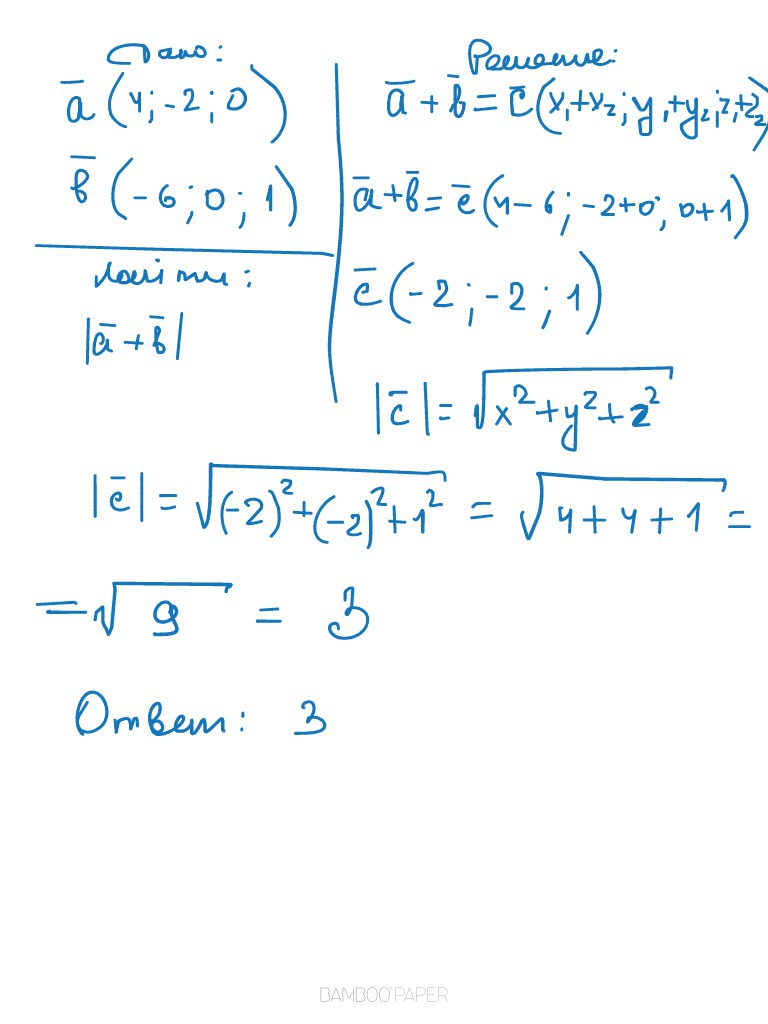 Дано:
a̅ (4; -2; 0)
b̅ (-6; 0; 1)
Найти:
|a̅ + b̅|
Решение:
a̅ + b̅ = c̅ (x₁+x₂; y₁+y₂; z₁+z₂)
a̅ + b̅ = c̅ (4-6; -2+0; 0+1)
c̅ (-2; -2; 1)
|c̅| = √(x² + y² + z²)
|c̅| = √((-2)² + (-2)² + 1²) = √(4 + 4 + 1) =
= √9 = 3
Ответ: 3
BAMBOO PAPER